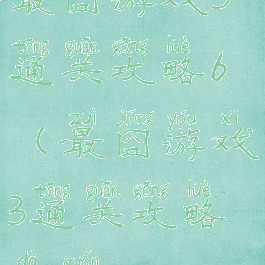 最囧游戏5
tōng guān gōng lüè
通关攻略6
zuì jiǒng yóu xì
(最囧游戏
tōng guān gōng lüè
3通关攻略